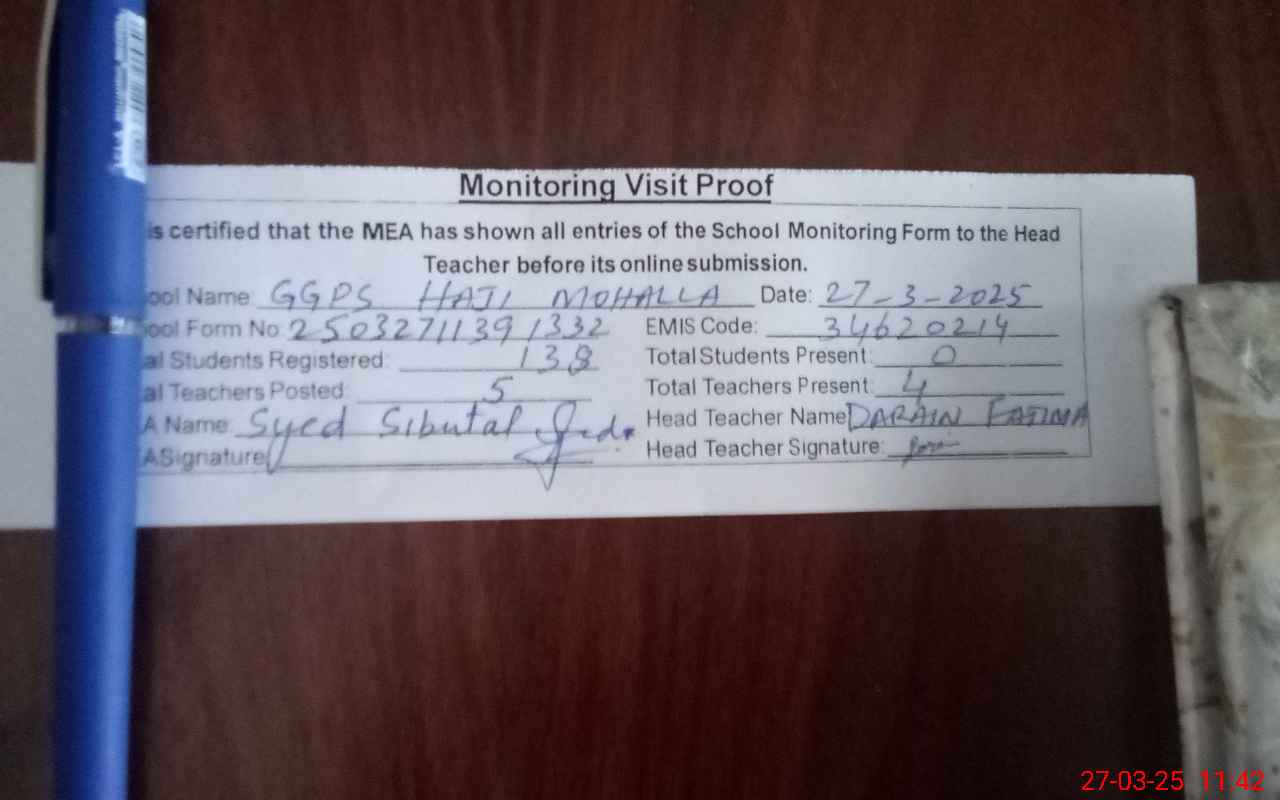 Monitoring Visit Proof
is certified that the MEA has shown all entries of the School Monitoring Form to the Head
Teacher before its online submission.
ool Name: GGPS HAJI MOHALLA Date: 27-3-2025
ool Form No: 25032711391332 EMIS Code: 34620214
al Students Registered: 138 Total Students Present: 0
al Teachers Posted: 5 Total Teachers Present: 4
A Name: Syed Sibutal Head Teacher Name DARAIN FATIMA
A Signature Head Teacher Signature:
27-03-25 11:42